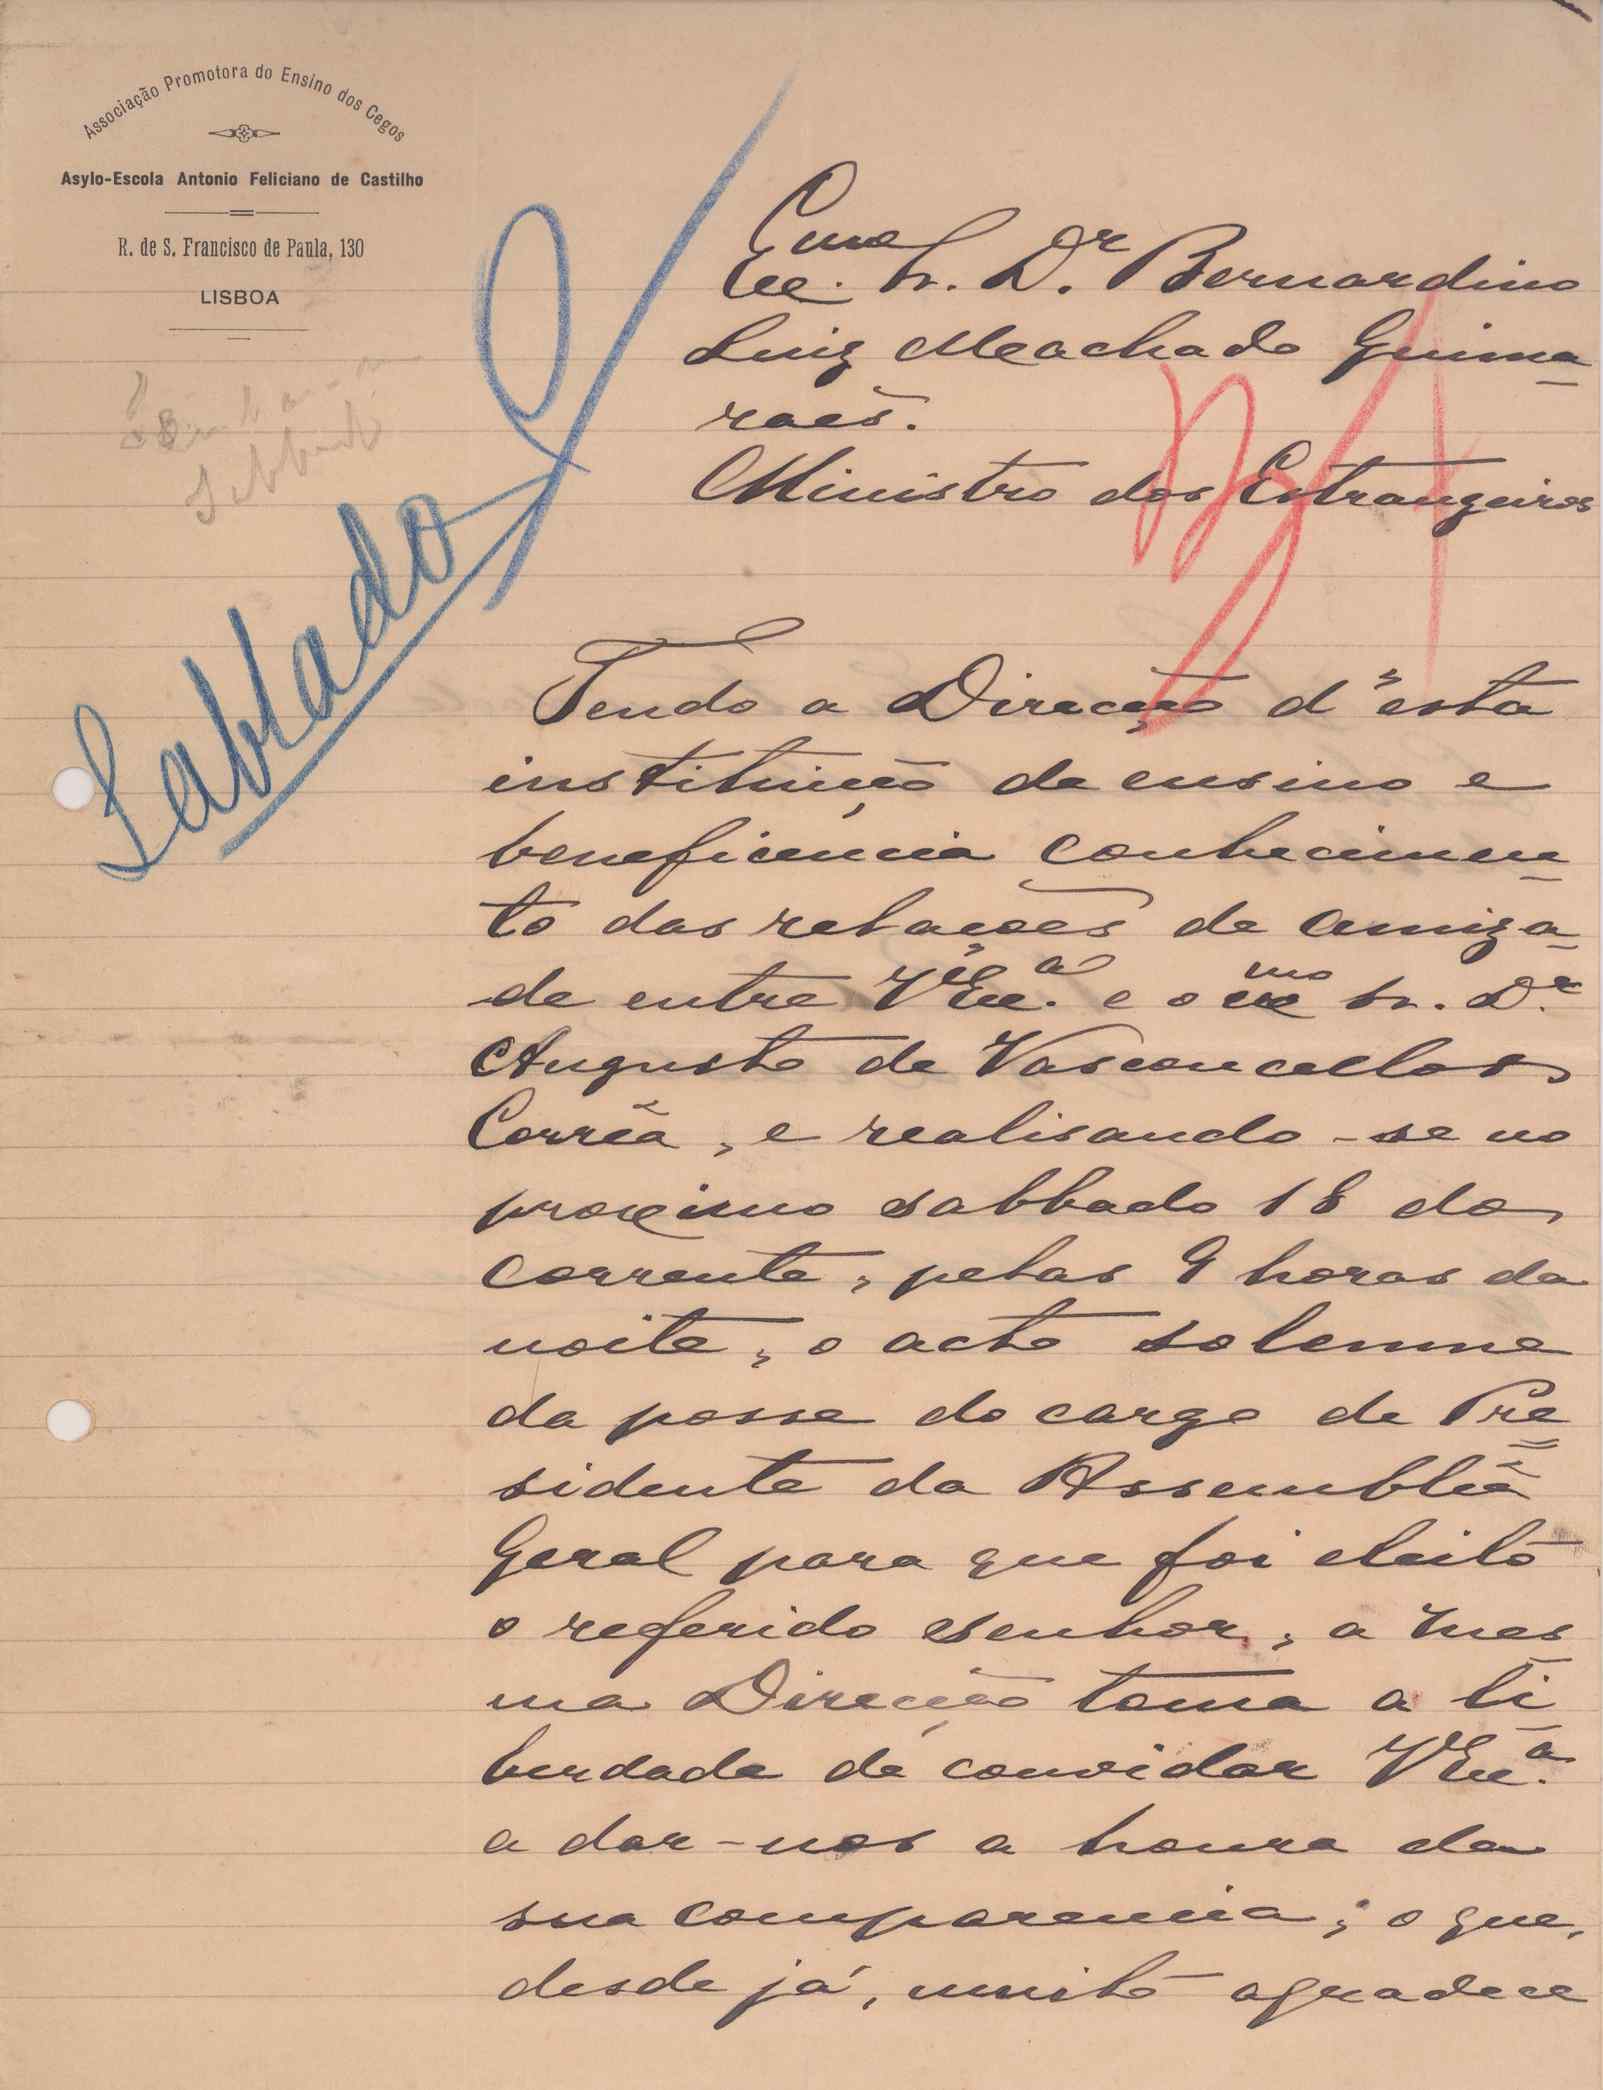 Associação Promotora do Ensino dos Cegos
Asylo-Escola Antonio Feliciano de Castilho
R. de S. Francisco de Paula, 130
LISBOA
Sabbado
Sabbado
Exmo Sr. Dr Bernardino
Luiz Machado Guima-
raes.
Ministro dos Estrangeiros
Tendo a Direcção d'esta
instituição de ensino e
beneficencia conhecimen-
to das relações de amiza-
de entre V Exa. e o exmo sr. Dr.
Augusto de Vasconcellos
Corrêa, e realisando-se no
proximo sabbado 18 do
corrente, pelas 9 horas da
noite, o acto solemne
da posse do cargo de Pre=
sidente da Assembléa
Geral para que foi eleito
o referido senhor, a mes-
ma Direcção toma a li-
berdade de convidar V Exa.
a dar-nos a honra da
sua comparencia; o que,
desde já, muito agradece